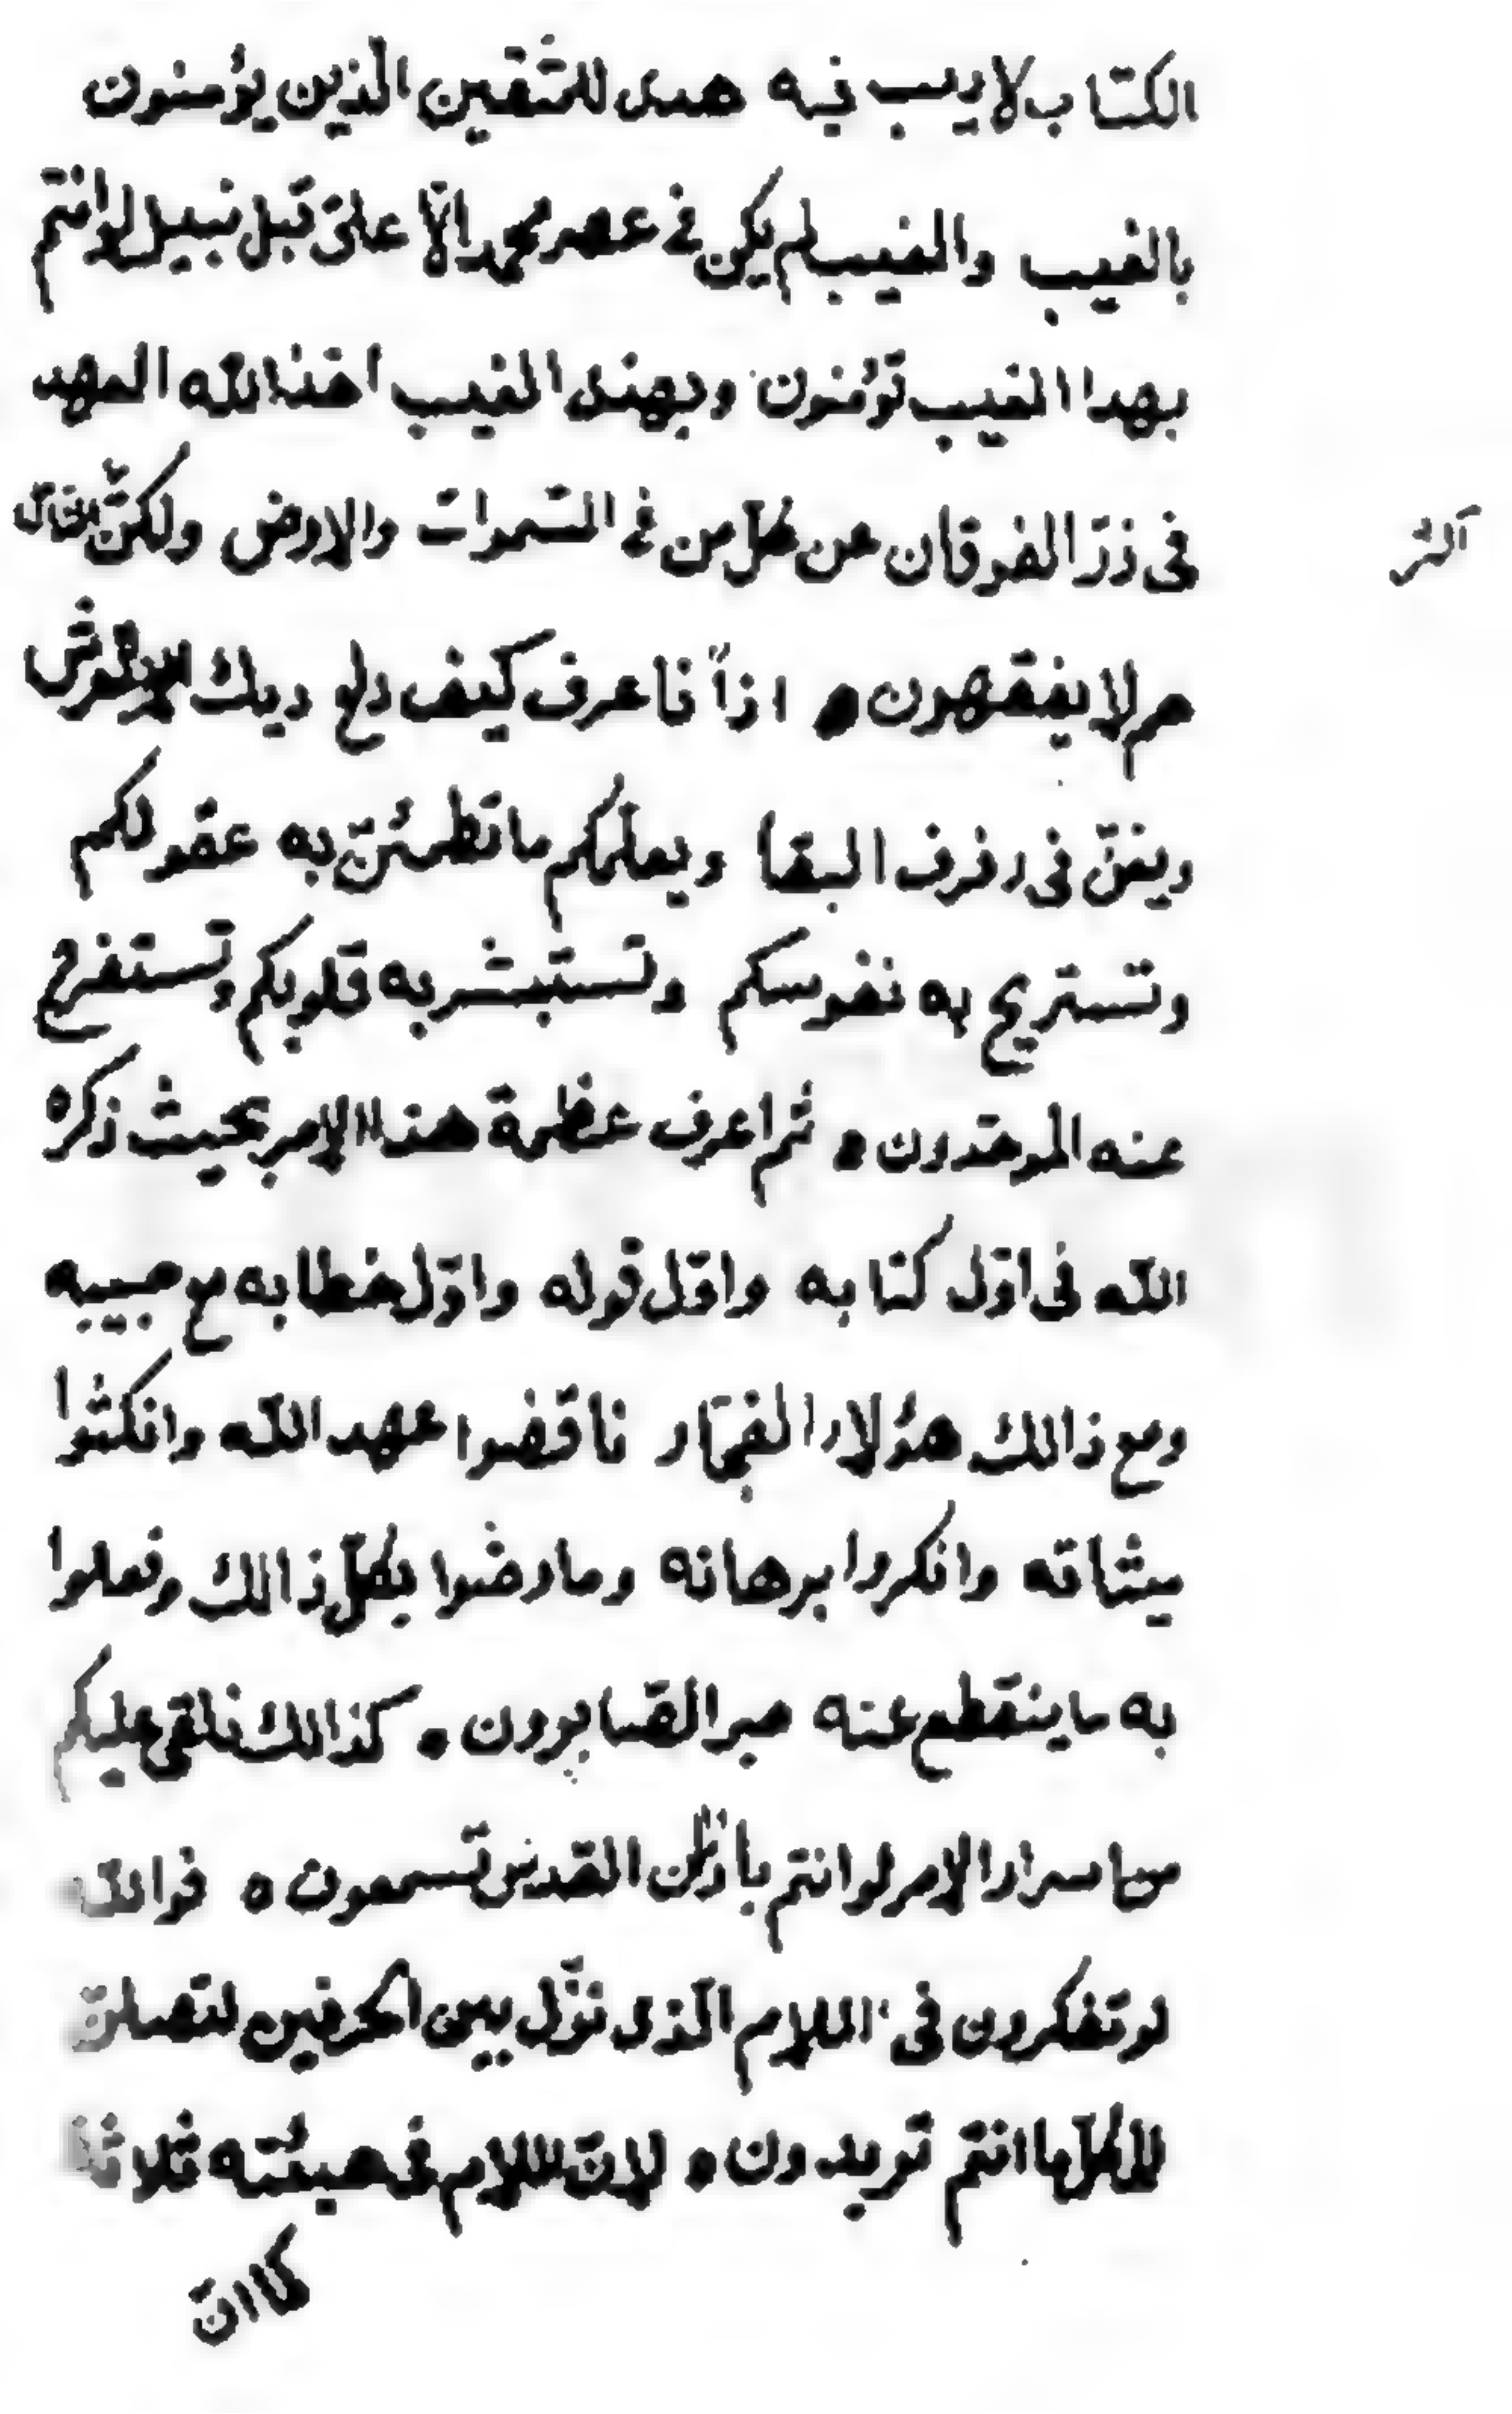 الكتاب لا ريب فيه هدى للمتّقين الّذين يؤمنون
بالغيب والغيب لم يكن فى عصر محمد الّا علىّ قبل نبيل لو انتم
بهذا الغيب تؤمنون وبهذا الغيب اخذ الله العهد
فى ذرّ الفرقان عن كلّ من فى السّموات والارض ولكنّ النّاس
اكثر
هم لا يفقهون ه اذاً فاعرف كيف دلع ديك العرش
ويغنّ فى رفرف البقا ويعلّمكم ما تطمئنّ به عقولكم
وتستريح به نفوسكم وتستبشر به قلوبكم وتستفرح
عنه الموحّدون ه ثم اعرف عظمة هذا الامر بحيث ذكره
الله فى اوّل كتابه واوّل قوله واوّل خطابه مع حبيبه
ومع ذالك هؤلاء الفجّار ناقضوا عهد الله وانكثوا
ميثاقه وانكروا برهانه وما رضوا بكلّ ذالك وفعلوا
به ما ينقطع عنه صبر الصّابرون ه كذالك نلقى عليكم
من اسرار الامر لو انتم باذن القدس تسمعون ه فوالله
لو تفكرون فى اللام الّذى نزّل بين الحرفين لتصلنّ
لكلّ ما انتم تريدون ه لانّ اللام فى هيئته ثلاثة
كما انّ